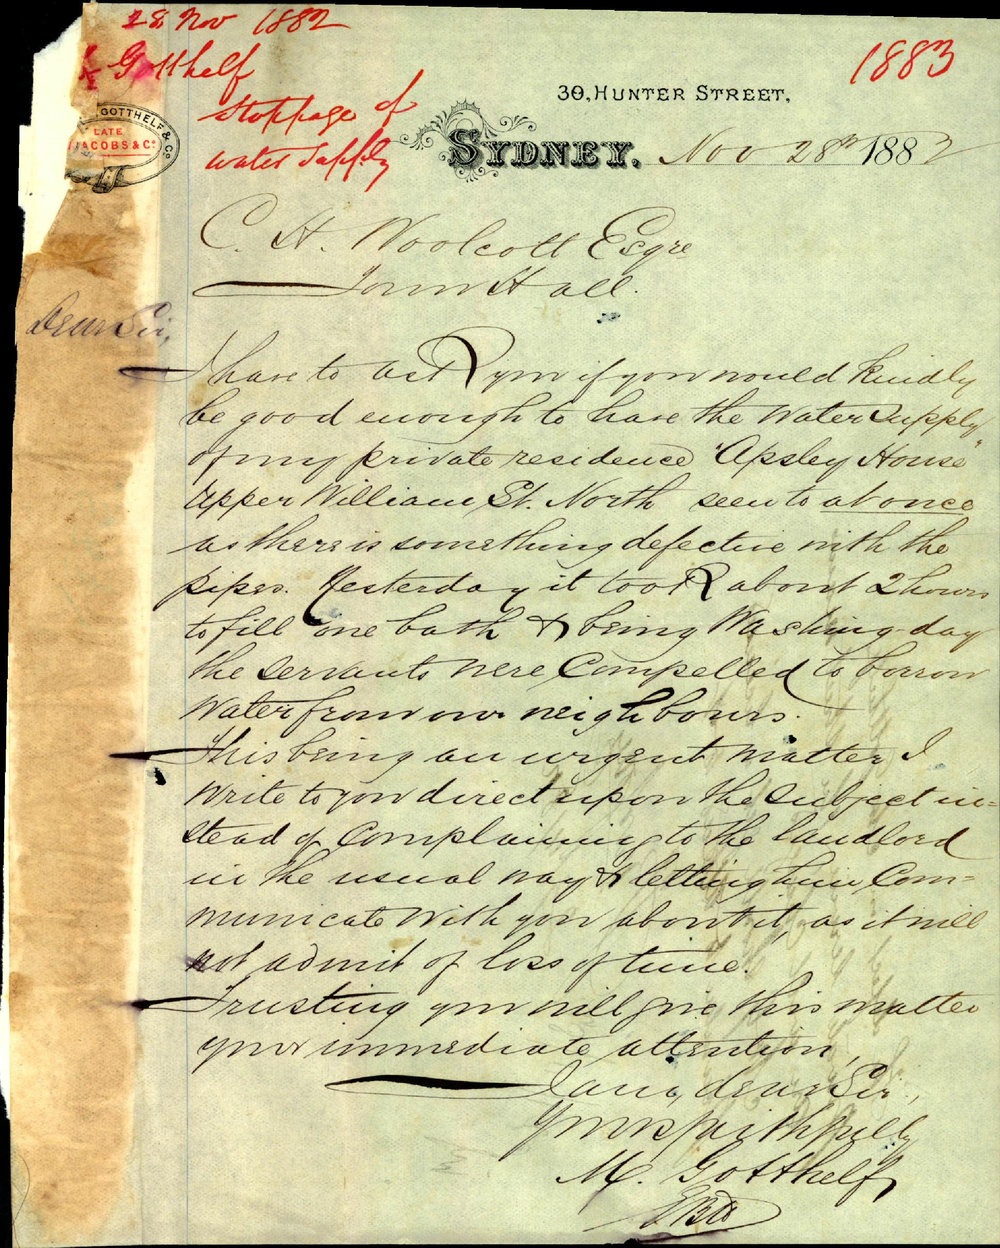 28 Nov 1882
Gotthelf
Stoppage of
water supply
1883
GOTTHELF & Co
LATE
JACOBS & Co
30, HUNTER STREET,
SYDNEY, Nov 28th 1882
C. H. Woolcott Esqre
Town Hall.
Dear Sir,
I have to ask you if you would kindly
be good enough to have the Water Supply
of my private residence "Apsley House"
Upper William St. North seen to at once
as there is something defective with the
pipes. Yesterday it took about 2 hours
to fill one bath & being Washing-day
the servants were compelled to borrow
Water from our neighbours.
This being an urgent matter I
write to you direct upon the subject in=
stead of complaining to the landlord
in the usual way & letting him Com=
municate with you about it, as it will
not admit of loss of time.
Trusting you will give this matter
your immediate attention,
I am, dear Sir,
Yours faithfully
M. Gotthelf